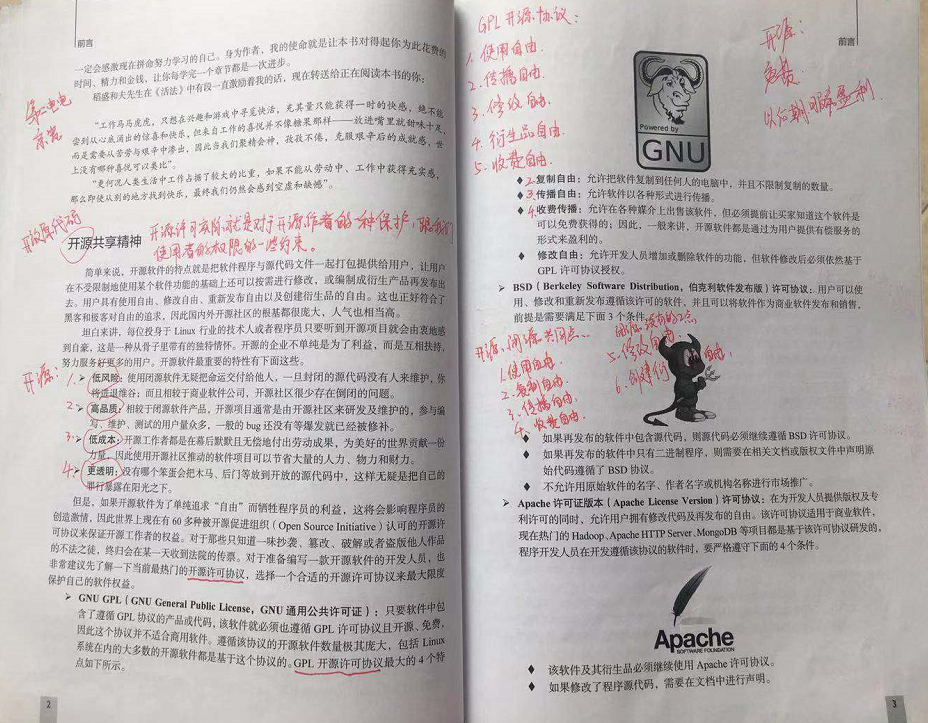 前言
一定会感激现在拼命努力学习的自己。身为作者，我的使命就是让本书对得起你为此花费的
时间、精力和金钱，让你每学完一个章节都是一次进步。
稻盛和夫先生在《活法》中有段一直激励着我的话，现在转送给正在阅读本书的你：
“工作马马虎虎，只想在兴趣和游戏中寻觅快活，充其量只能获得一时的快感，绝不能
尝到从心底涌出的惊喜和快乐，但来自工作的喜悦并不像糖果那样——放进嘴里就甜味十足，
而是需要从苦劳与艰辛中渗出，因此当我们聚精会神，孜孜不倦，克服艰辛后的成就感，世
上没有哪种喜悦可以类比”。
“更何况人类生活中工作占据了较大的比重，如果不能从劳动中、工作中获得充实感，
那么即使从别的地方找到快乐，最终我们仍然会感到空虚和缺憾”。
第二电电
京瓷
开放源代码
开源许可就是对于开源作者的一种保护，跟我们
使用者的权限的一些约束。
开源共享精神
简单来说，开源软件的特点就是把软件程序与源代码文件一起打包提供给用户，让用户
在不受限制地使用某个软件功能的基础上还可以按需进行修改，或编制成衍生产品再发布出
去。用户具有使用自由、修改自由、重新发布自由以及创建衍生品的自由。这也正好符合了
黑客和极客对自由的追求，因此国内外开源社区的根基都很庞大，人气也相当高。
坦白来讲，每位投身于 Linux 行业的技术人或者程序员只要听到开源项目就会由衷地感
到自豪，这是一种从骨子里带有的独特情怀。开源的企业不单纯是为了利益，而是互相扶持，
努力服务好更多的用户。开源软件最重要的特性有下面这些。
开源：
1. ➢ 低风险：使用闭源软件无疑把命运交付给他人，一旦封闭的源代码没有人来维护，你
将进退维谷；而且相较于商业软件公司，开源社区很少存在倒闭的问题。
2. ➢ 高品质：相较于闭源软件产品，开源项目通常是由开源社区来研发及维护的，参与编
写、维护、测试的用户量众多，一般的 bug 还没有等爆发就已经被修补。
3. ➢ 低成本：开源工作者都是在幕后默默且无偿地付出劳动成果，为美好的世界贡献一份
力量，因此使用开源社区推动的软件项目可以节省大量的人力、物力和财力。
4. ➢ 更透明：没有哪个笨蛋会把木马、后门等放到开放的源代码中，这样无疑是把自己的
罪行暴露在阳光之下。
但是，如果开源软件为了单纯追求“自由”而牺牲程序员的利益，这将会影响程序员的
创造激情，因此世界上现在有 60 多种被开源促进组织（Open Source Initiative）认可的开源许
可协议来保证开源工作者的权益。对于那些只知道一味抄袭、篡改、破解或者盗版他人作品
的不法之徒，终归会在某一天收到法院的传票。对于准备编写一款开源软件的开发人员，也
非常建议先了解一下当前最热门的开源许可协议，选择一个合适的开源许可协议来最大限度
保护自己的软件权益。
➢ GNU GPL（GNU General Public License，GNU 通用公共许可证）：只要软件中包
含了遵循 GPL 协议的产品或代码，该软件就必须也遵循 GPL 许可协议且开源、免费，
因此这个协议并不适合商用软件。遵循该协议的开源软件数量极其庞大，包括 Linux
系统在内的大多数的开源软件都是基于这个协议的。GPL 开源许可协议最大的 4 个特
点如下所示。
2
前言
GPL 开源协议：
1. 使用自由.
2. 传播自由.
3. 修改自由.
4. 衍生品自由.
5. 收费自由.
开源：
免费
以后期服务盈利.
Powered by
GNU
♦ 2. 复制自由：允许把软件复制到任何人的电脑中，并且不限制复制的数量。
♦ 3. 传播自由：允许软件以各种形式进行传播。
♦ 4. 收费传播：允许在各种媒介上出售该软件，但必须提前让买家知道这个软件是
可以免费获得的；因此，一般来讲，开源软件都是通过为用户提供有偿服务的
形式来盈利的。
♦ 修改自由：允许开发人员增加或删除软件的功能，但软件修改后必须依然基于
GPL 许可协议授权。
➢ BSD（Berkeley Software Distribution，伯克利软件发布版）许可协议：用户可以使
用、修改和重新发布遵循该许可的软件，并且可以将软件作为商业软件发布和销售，
前提是需要满足下面 3 个条件。
开源、闭源共同点：
1. 使用自由.
2. 复制自由.
3. 传播自由.
4. 收费自由.
5. 修改自由.
6. 创建衍
自由.
♦ 如果再发布的软件中包含源代码，则源代码必须继续遵循 BSD 许可协议。
♦ 如果再发布的软件中只有二进制程序，则需要在相关文档或版权文件中声明原
始代码遵循了 BSD 协议。
♦ 不允许用原始软件的名字、作者名字或机构名称进行市场推广。
➢ Apache 许可证版本（Apache License Version）许可协议：在为开发人员提供版权及专
利许可的同时，允许用户拥有修改代码及再发布的自由。该许可协议适用于商业软件，
现在热门的 Hadoop、Apache HTTP Server、MongoDB 等项目都是基于该许可协议研发的，
程序开发人员在开发遵循该协议的软件时，要严格遵守下面的 4 个条件。
Apache
SOFTWARE FOUNDATION
♦ 该软件及其衍生品必须继续使用 Apache 许可协议。
♦ 如果修改了程序源代码，需要在文档中进行声明。
3